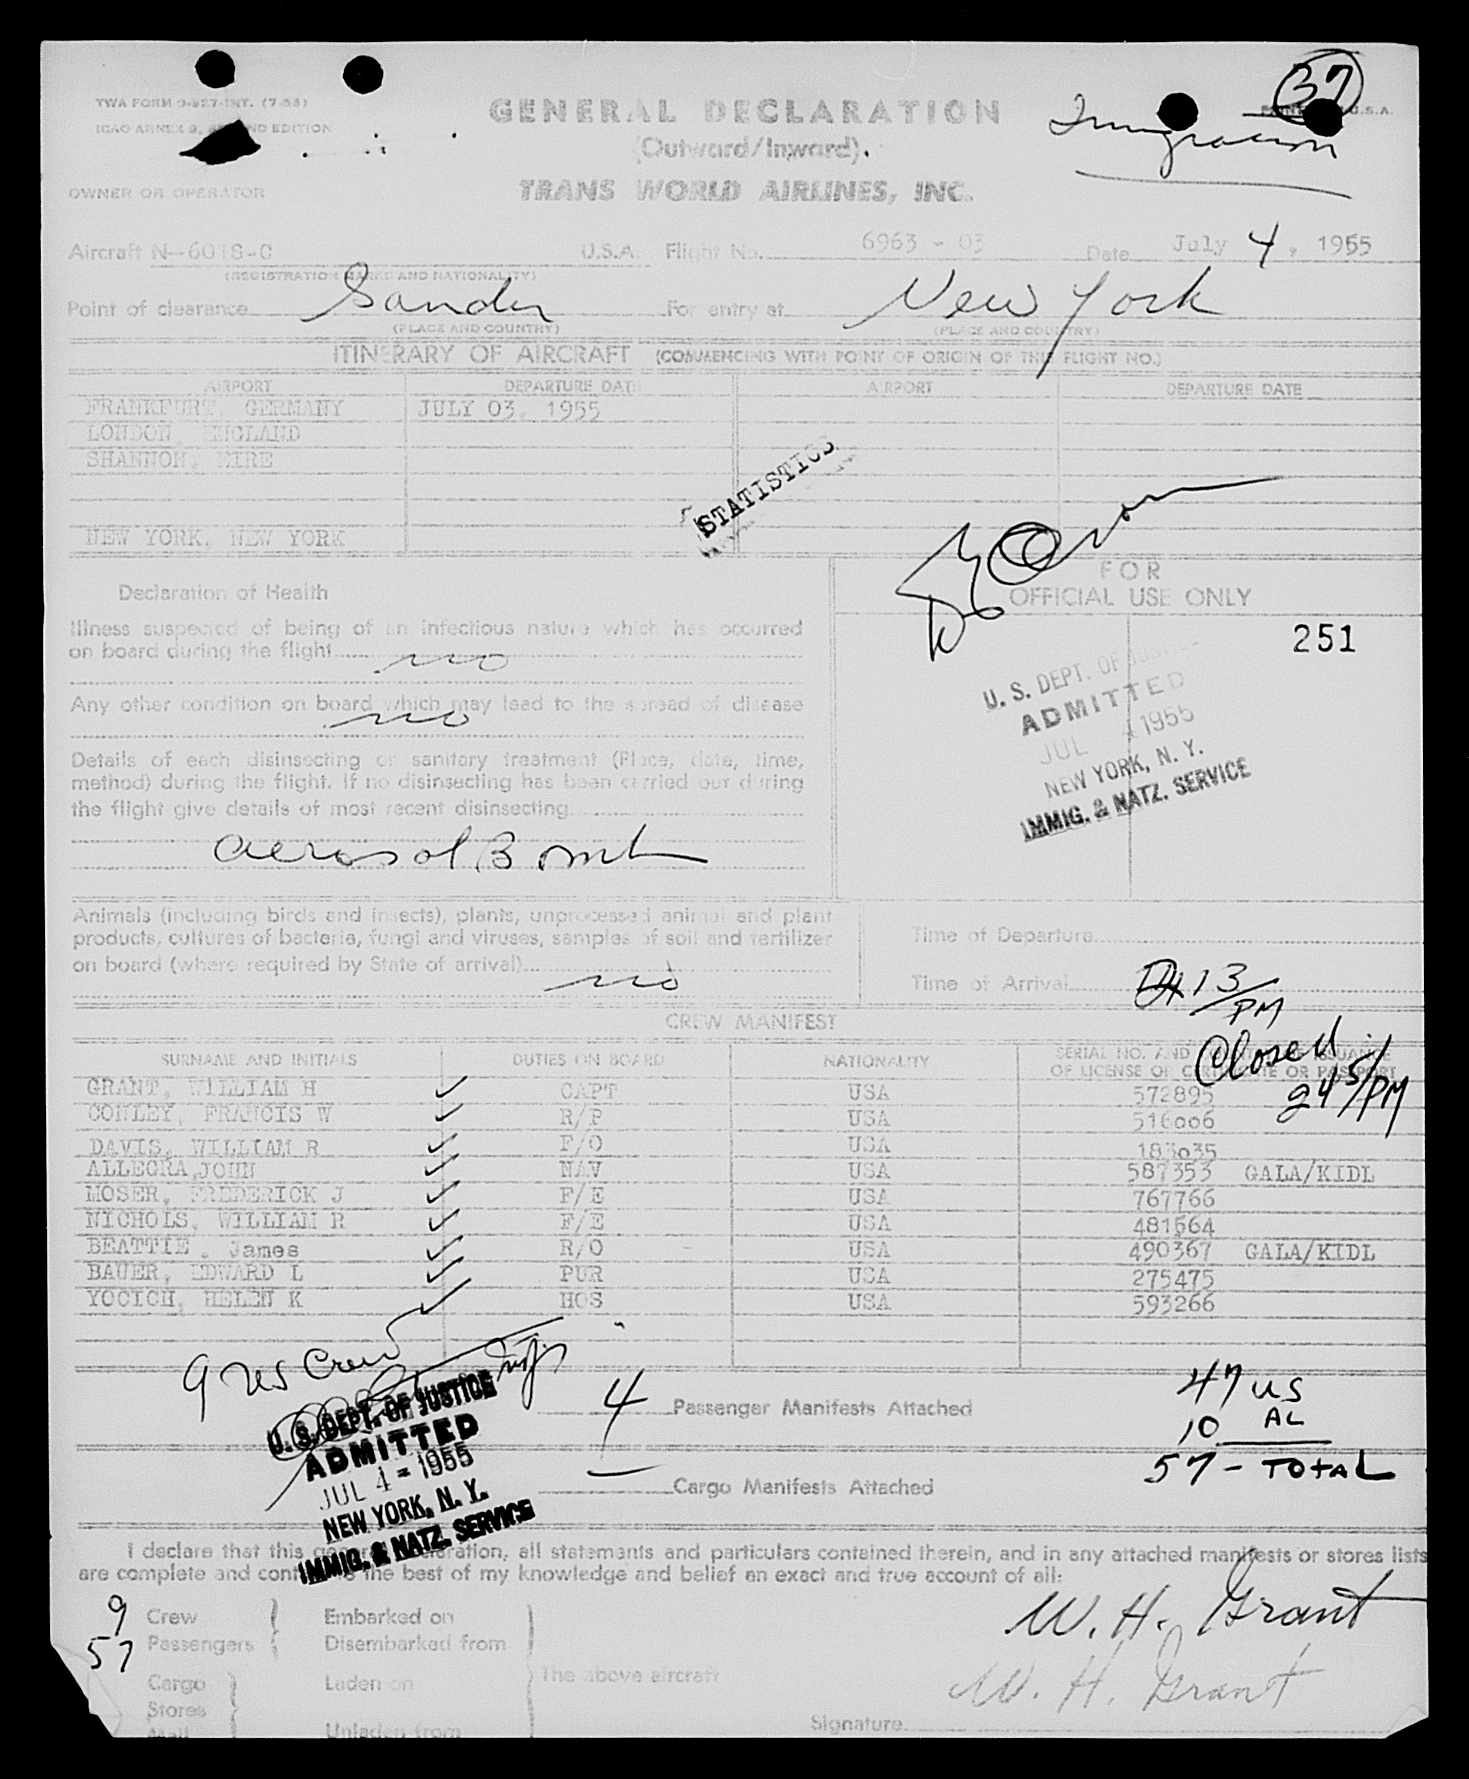 37
TWA FORM 0-927-INT. (7-55)
GENERAL DECLARATION
Immigration
ICAO ANNEX 9, 2ND EDITION
(Outward/Inward).
OWNER OR OPERATOR
TRANS WORLD AIRLINES, INC.
Aircraft N-6018-C U.S.A. Flight No. 6963 - 03 Date July 4, 1955
(REGISTRATION MARKS AND NATIONALITY)
Point of clearance Gander For entry at New York
(PLACE AND COUNTRY) (PLACE AND COUNTRY)
ITINERARY OF AIRCRAFT (COMMENCING WITH POINT OF ORIGIN OF THIS FLIGHT NO.)
AIRPORT DEPARTURE DATE AIRPORT DEPARTURE DATE
FRANKFURT, GERMANY JULY 03, 1955
LONDON, ENGLAND
SHANNON, EIRE
STATISTICS
NEW YORK, NEW YORK
FOR
OFFICIAL USE ONLY
251
U. S. DEPT. OF JUSTICE
ADMITTED
JUL 4 1955
NEW YORK, N. Y.
IMMIG. & NATZ. SERVICE
Declaration of Health
Illness suspected of being of an infectious nature which has occurred
on board during the flight no
Any other condition on board which may lead to the spread of disease
no
Details of each disinsecting or sanitary treatment (Place, date, time,
method) during the flight. If no disinsecting has been carried out during
the flight give details of most recent disinsecting
aerosol Bomb
Animals (including birds and insects), plants, unprocessed animal and plant
products, cultures of bacteria, fungi and viruses, samples of soil and fertilizer
on board (where required by State of arrival) no
Time of Departure
Time of Arrival 13/PM
CREW MANIFEST
Closed 245/PM
SURNAME AND INITIALS DUTIES ON BOARD NATIONALITY SERIAL NO. AND COUNTRY OF ISSUANCE
OF LICENSE OR CERTIFICATE OR PASSPORT
GRANT, WILLIAM H CAPT USA 572895
CONLEY, FRANCIS W R/P USA 516006
DAVIS, WILLIAM R F/O USA 183035
ALLEGRA, JOHN NAV USA 587353 GALA/KIDL
MOSER, FREDERICK J F/E USA 767766
NICHOLS, WILLIAM R F/E USA 481564
BEATTIE, James R/O USA 490367 GALA/KIDL
BAUER, EDWARD L PUR USA 275475
YOCICH, HELEN K HOS USA 593266
9 US Crew
U. S. DEPT. OF JUSTICE
ADMITTED
JUL 4 - 1955
NEW YORK, N. Y.
IMMIG. & NATZ. SERVICE
4 Passenger Manifests Attached
47 US
10 AL
57 - TOTAL
Cargo Manifests Attached
I declare that this general declaration, all statements and particulars contained therein, and in any attached manifests or stores lists
are complete and contain to the best of my knowledge and belief an exact and true account of all:
9 Crew Embarked on
57 Passengers Disembarked from
W. H. Grant
Cargo Laden on The above aircraft
W. H. Grant
Stores
Mail Unladen from
Signature